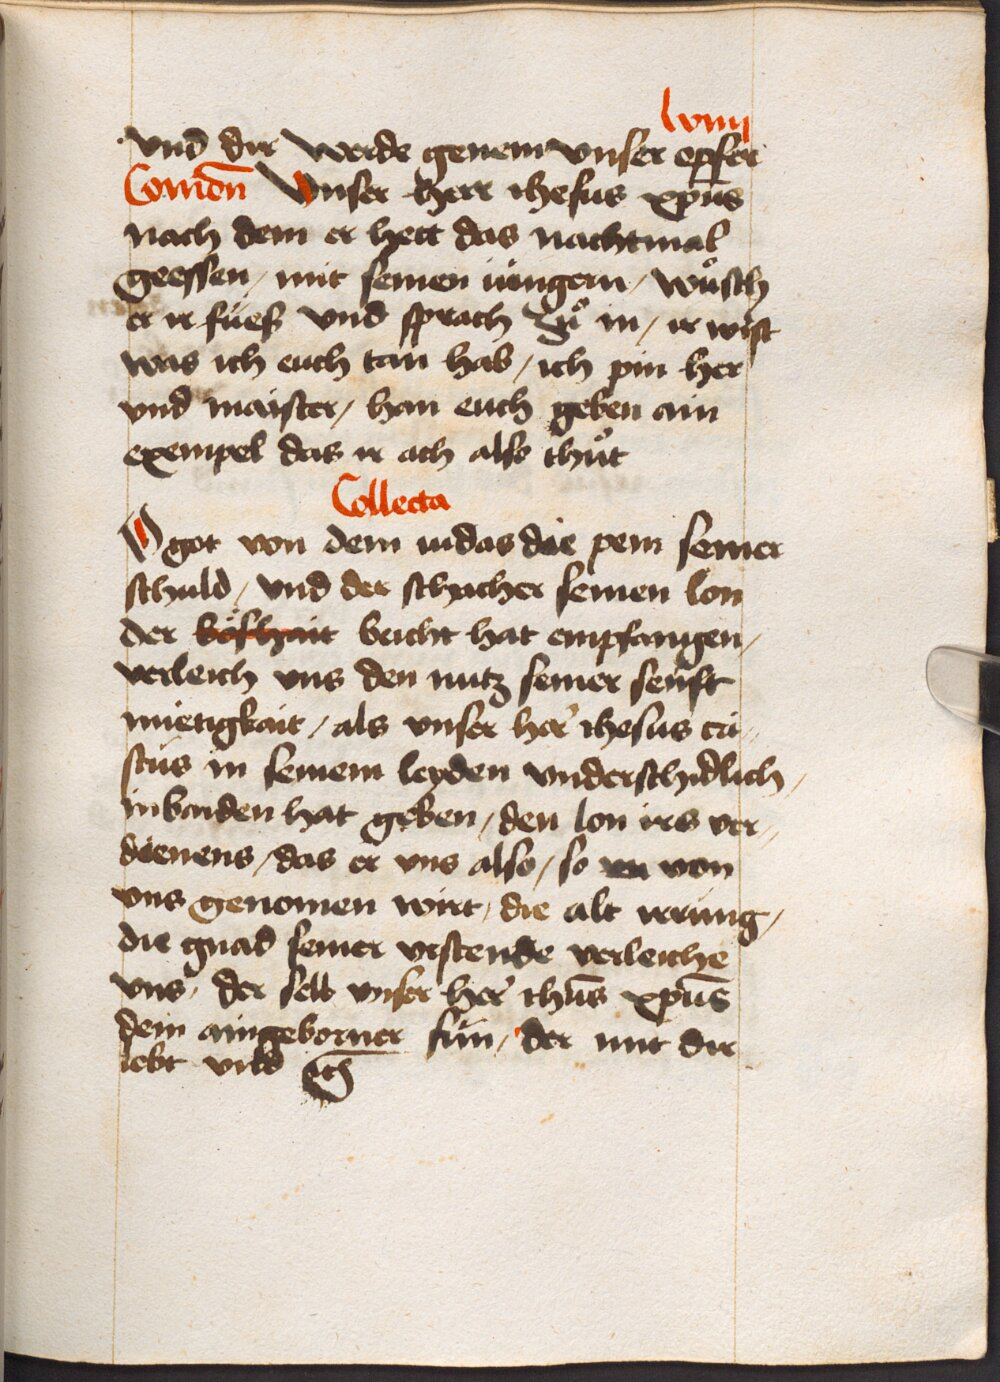 lviiij
Vnd dir werde genem vnser opfer
Comōn Vnser herr ihesus xpūs
nach dem er hett das nachtmal
geessen / mit seinen iüngern / wůsch
er ir füeß vnd sprach zů in / ir wist
was ich euch tan hab / ich pin her
vnd maister / han euch geben ain
exempel das ir ach also thůt
Collecta
O got von dem iudas die pein seiner
schuld / vnd der schacher seinen lon
der boßhait beicht hat empfangen /
verleich vns den nutz seiner senft
mietigkait / als vnser her ihesus cri〃
stus in seinem leyden vnderschidlich /
in baiden hat geben / den lon irs ver〃
dienens / das er vns also / so von
vns genomen wirt / die alt irrung /
die gnad seiner vrstende verleiche
vns / der selb vnser her ihūs xpūs
dein aingeborner sun / der mit dir
lebt vnd etc